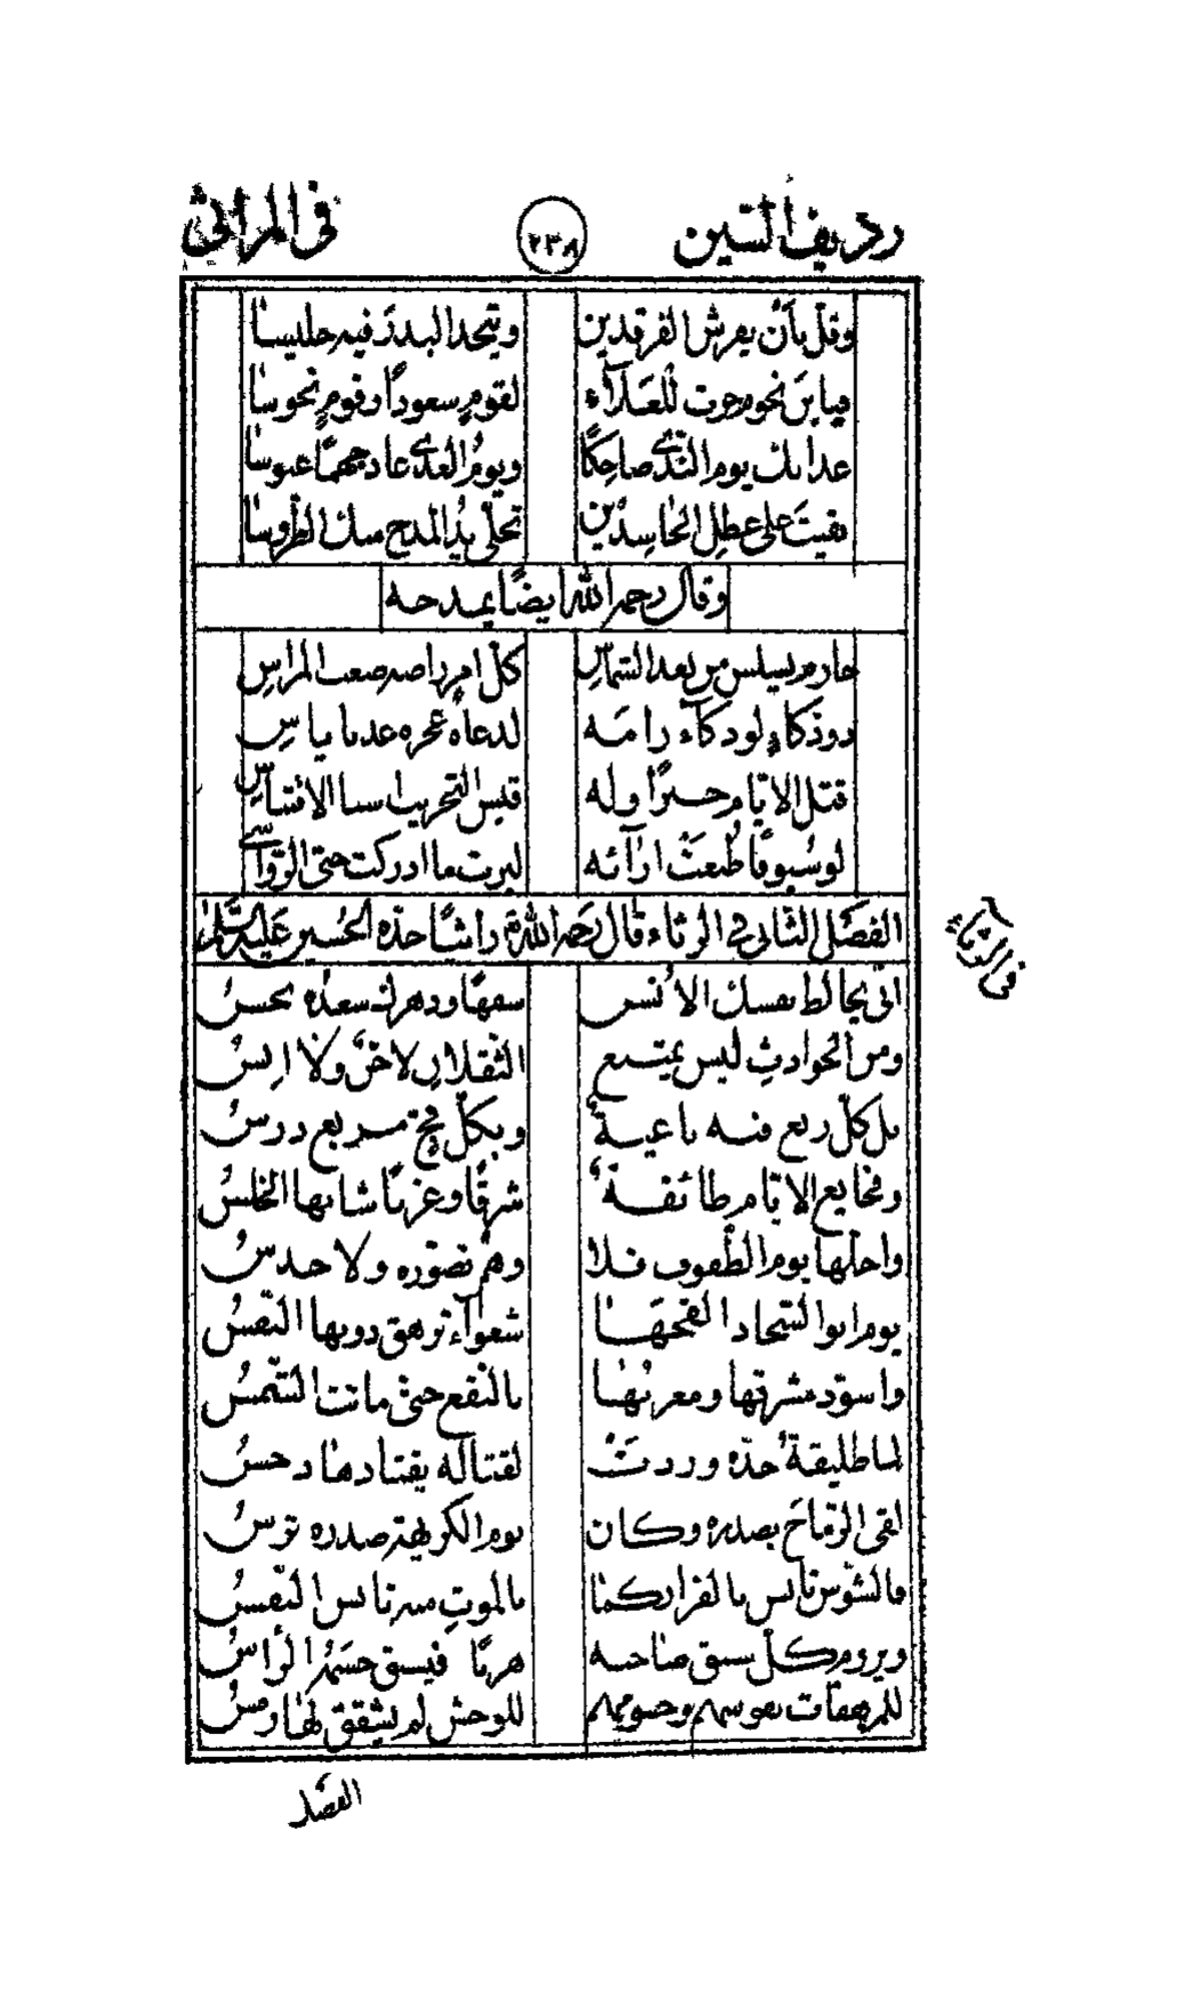 رديف السين ٢٣٨ في المراثي
وقلّ بأن يفرش الفرقدين ويتّخد البدرَ فيه جليسا
فيا بنَ نجوم جرت للعَلاء لقومٍ سعودًا وقومٍ نحوسا
عدا بك يوم النّدى ضاحكًا ويومُ العدى عاد جهمًا عبوسا
بقيتَ على عطلِ الحاسدين تحلّي يدُ المدح منك الطروسا
وقال رحمه الله أيضًا يمدحه
حازم يسلس من بعد الشماسِ كلّ امرٍ راضه صعب المراسِ
ذو ذكاءٍ لو ذكاء رامَه لدعاه عجزه عد يا ياسِ
قتل الايّام خبرًا وله قبس التجريب اسنا الاقتباسِ
لو سيوفًا طُبعتْ اراءه لبرت ما ادركت حتى الرّواسي
الفصل الثّاني في الرثاء قال رحمه الله راثيًا جدّه الحسين عليه السّلام
في الرثاء
انّى يخالط نفسك الأنس سفهًا ودهرك سعدُه نحسُ
ومن الحوادثِ ليس يمتنع الثّقلان لا جنٌّ ولا انسُ
بل كلّ ربع فيه ناعيةٌ وبكلّ فجّ مربع درسُ
وفجايع الايّام طائفةٌ شرقًا وغربًا شابها الخلسُ
واجلّها يوم الطّفوف فلا وهمٌ تصوّره ولا حدسُ
يوم ابو السّجاد القحهَا شعواء تزهق دونها النّفسُ
واسودّ مشرقها ومغربُها بالنّقع حتى ماتت الشّمسُ
لما طليقةُ جدّه وردتْ لقتاله يقتادها رجسُ
لقى الرّماحَ بصدره وكان يوم الكريهة صدره ترسُ
فالشّوس تأنس بالفرار كما بالموتِ منه تأنس النّفسُ
ويروم كلّ سبق صاحبه هربًا فيسبق جسمَهُ الرّأسُ
للمرهفات نفوسهم وجسومهم للوحش لم يشقق لها رمسُ
الفصل